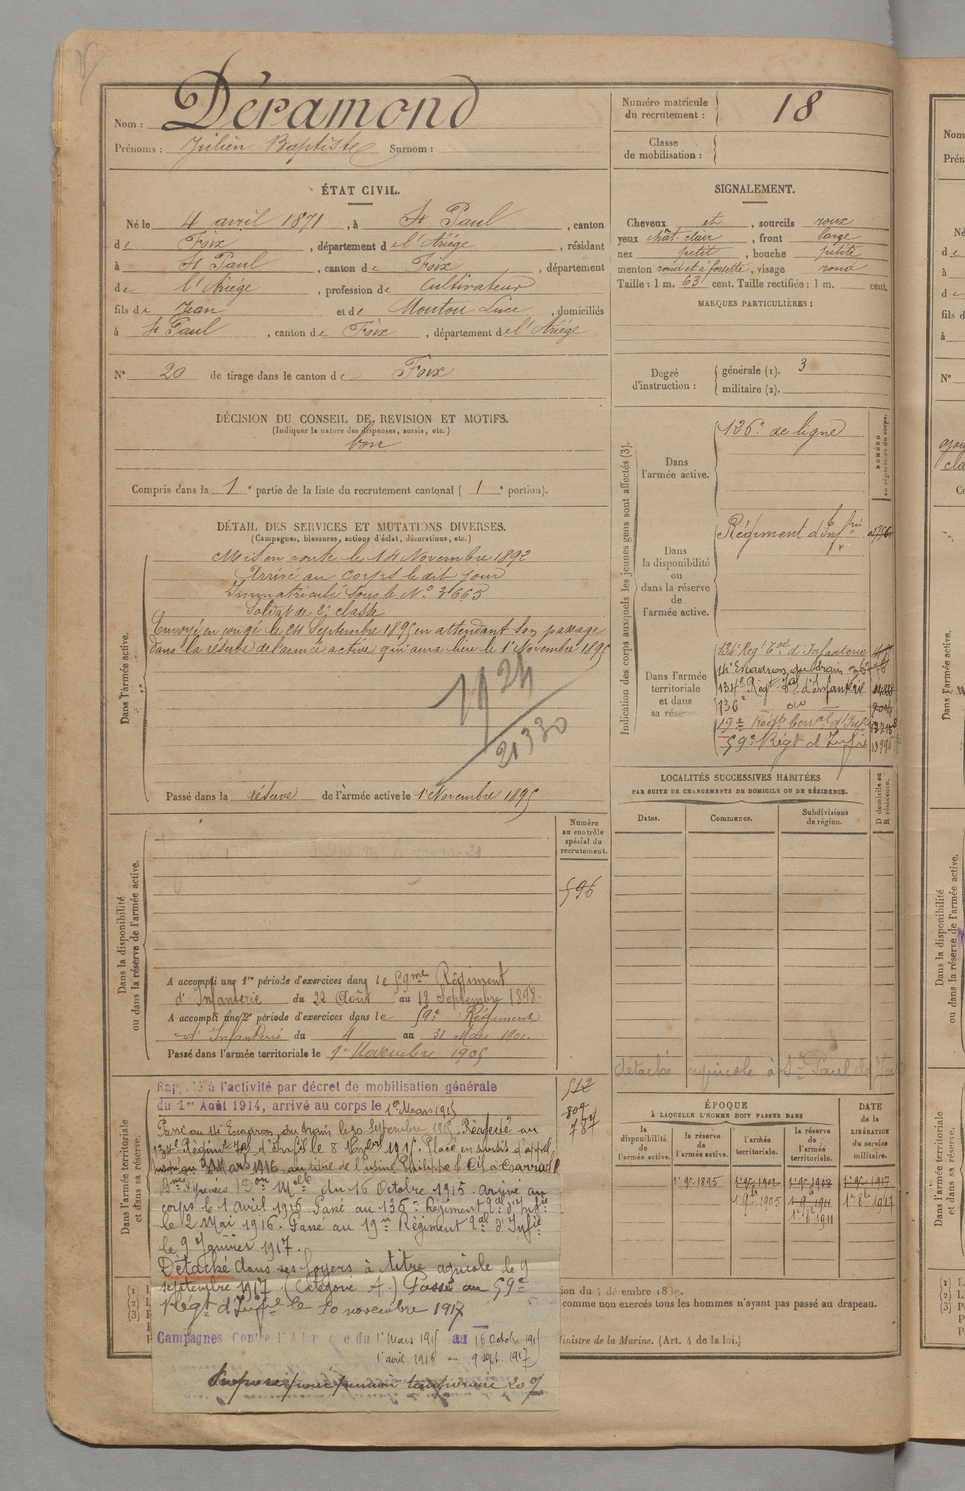 Nom : Déramond
Prénoms : Julien Baptiste Surnom :
Numéro matricule du recrutement : 18
Classe de mobilisation :
ÉTAT CIVIL.
Né le 4 avril 1871, à St Paul, canton
de Foix, département de l'Ariége, résidant
à St Paul, canton de Foix, département
de l'Ariége, profession de Cultivateur
fils de Jean et de Mouton Luce, domiciliés
à St Paul, canton de Foix, département de l'Ariége
N° 20 de tirage dans le canton de Foix
SIGNALEMENT.
Cheveux et, sourcils roux
yeux chât. clair, front large
nez petit, bouche petite
menton rond et à fossette, visage rond
Taille : 1 m. 63 cent. Taille rectifiée : 1 m. cent.
MARQUES PARTICULIÈRES :
Degré d'instruction : générale (1). 3
militaire (2).
DÉCISION DU CONSEIL DE REVISION ET MOTIFS.
(Indiquer la nature des dispenses, sursis, etc.)
bon
Compris dans la 1e partie de la liste du recrutement cantonal ( 1e portion).
DÉTAIL DES SERVICES ET MUTATIONS DIVERSES.
(Campagnes, blessures, actions d'éclat, décorations, etc.)
Dans l'armée active.
Mis en route le 14 Novembre 1892
Arrivé au corps le dit jour
Immatriculé sous le N° 3663
Soldat de 2e classe
Envoyé en congé le 24 Septembre 1895 en attendant son passage
dans la réserve de l'armée active qui aura lieu le 1 Novembre 1895
1924
21330
Passé dans la réserve de l'armée active le 1 Novembre 1895
Indication des corps auxquels les jeunes gens sont affectés (3).
NUMÉRO au répertoire du corps.
Dans l'armée active.
126e de ligne
Dans la disponibilité ou dans la réserve de l'armée active.
Régiment d'Infrie
Dans l'armée territoriale et dans sa réserve
134e Régt Tal d'Infanterie
14e Escadron du train
134e Régt Tal d'Infanterie
136e do
19e Régt terral d'Infie
59e Régt d'Infie
LOCALITÉS SUCCESSIVES HABITÉES
PAR SUITE DE CHANGEMENTS DE DOMICILE OU DE RÉSIDENCE.
Dates. Communes. Subdivisions de région. D domicile ou R résidence.
détaché agricole à St Paul de
Dans la disponibilité ou dans la réserve de l'armée active.
Numéro au contrôle spécial du recrutement.
596
A accompli une 1re période d'exercices dans le 59me Régiment
d'Infanterie du 22 Août au 18 Septembre 1898.
A accompli une 2e période d'exercices dans le 59e Régiment
d'Infanterie du 4 au 31 Mars 1901.
Passé dans l'armée territoriale le 1er Novembre 1905
Dans l'armée territoriale et dans sa réserve.
512
804
787
Rappelé à l'activité par décret de mobilisation générale
du 1er Août 1914, arrivé au corps le 1er Mars 1915
Passé au 14e Escadron du train le 30 septembre 1915. Réaffecté au
134e Régiment Tal d'Infie le 8 1915. Placé en sursis d'appel
jusqu'au Mars 1916 au titre de l'usine Philippe
du 16 Octobre 1915. Arrivé au
corps le 1 avril 1916. Passé au 136e Régiment Tal d'Infie
le 2 Mai 1916. Passé au 19me Régiment Tal d'Infie
le 9 Janvier 1917.
Détaché dans ses foyers à titre agricole le 9
septembre 1917 (Catégorie A.) Passé au 59e
Régt d'Infie le 10 novembre 1917
Campagnes Contre l'Allemagne du 1er Mars 1915 au 16 Octobre 1915
1er avril 1916 au 9 sept. 1917
Proposé pour pension temporaire 20 %
ÉPOQUE
À LAQUELLE L'HOMME DOIT PASSER DANS
la disponibilité de l'armée active.
la réserve de l'armée active.
l'armée territoriale.
la réserve de l'armée territoriale.
DATE de la LIBÉRATION du service militaire.
1er 9bre 1895
1er 9bre 1905
1er 9bre 1911
1er 8bre 1917
comme non exercés tous les hommes n'ayant pas passé au drapeau.
Ministre de la Marine. (Art. 4 de la loi.)